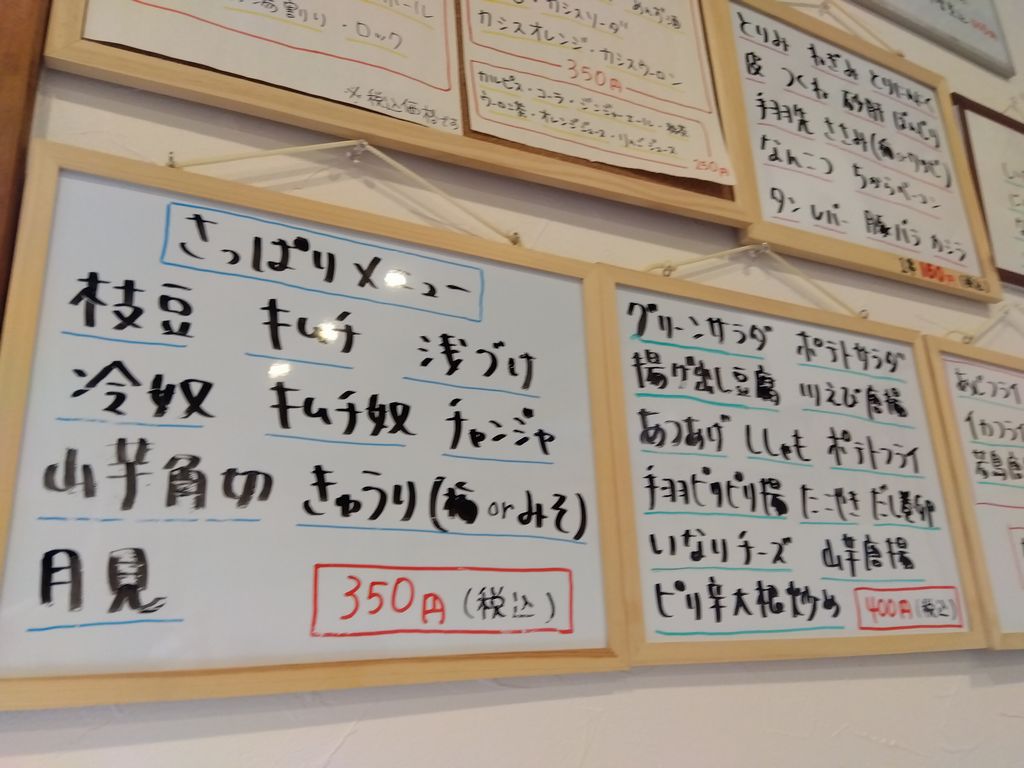 湯割り・ロック
※税込価格です
カシスソーダ
カシスオレンジ・カシスウーロン
350円
カルピス・コーラ・ジンジャーエール・緑茶
ウーロン茶・オレンジジュース・りんごジュース
250円
とりみ ねぎみ とりにんにく
皮 つくね 砂肝 ぼんじり
手羽先 ささみ(梅orワサビ)
なんこつ ちゅらベーコン
タン レバー 豚バラ カシラ
1本 150円 (税込)
さっぱりメニュー
枝豆 キムチ 浅づけ
冷奴 キムチ奴 チャンジャ
山芋角切 きゅうり(梅orみそ)
月見
350円(税込)
グリーンサラダ ポテトサラダ
揚げ出し豆腐 川えび唐揚
あつあげ ししゃも ポテトフライ
手羽ピリピリ揚 たこやき だし巻卵
いなりチーズ 山芋唐揚
ピリ辛大根炒め
400円(税込)
あじフライ
イカフライ